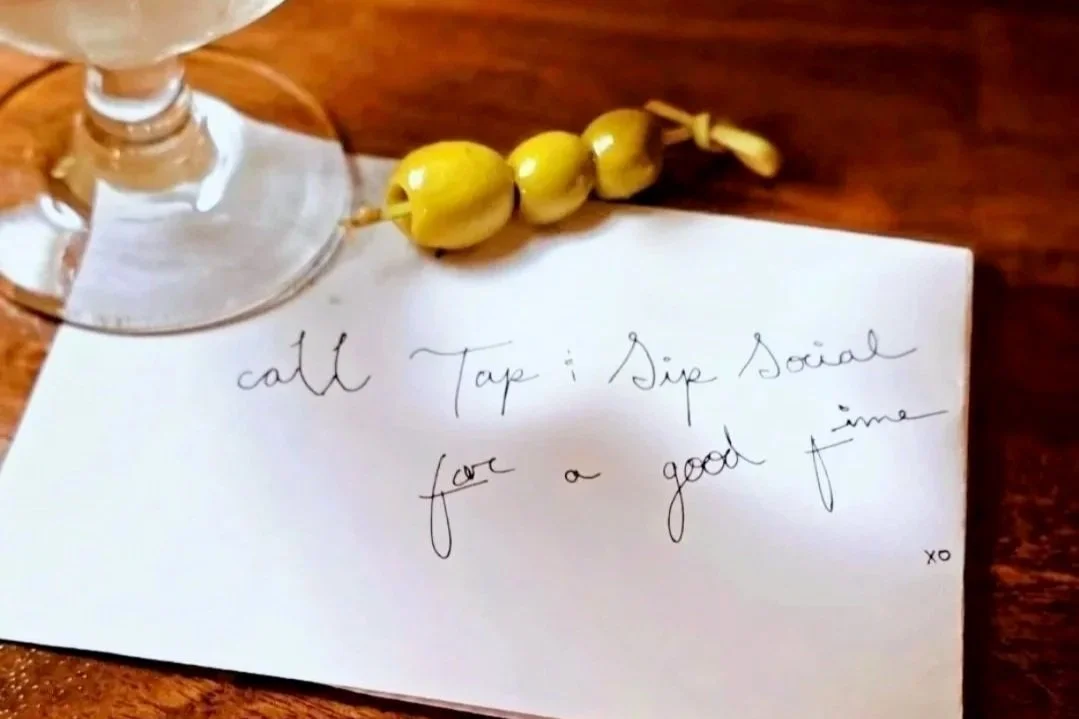 call Tap & Sip Social
for a good time
xo